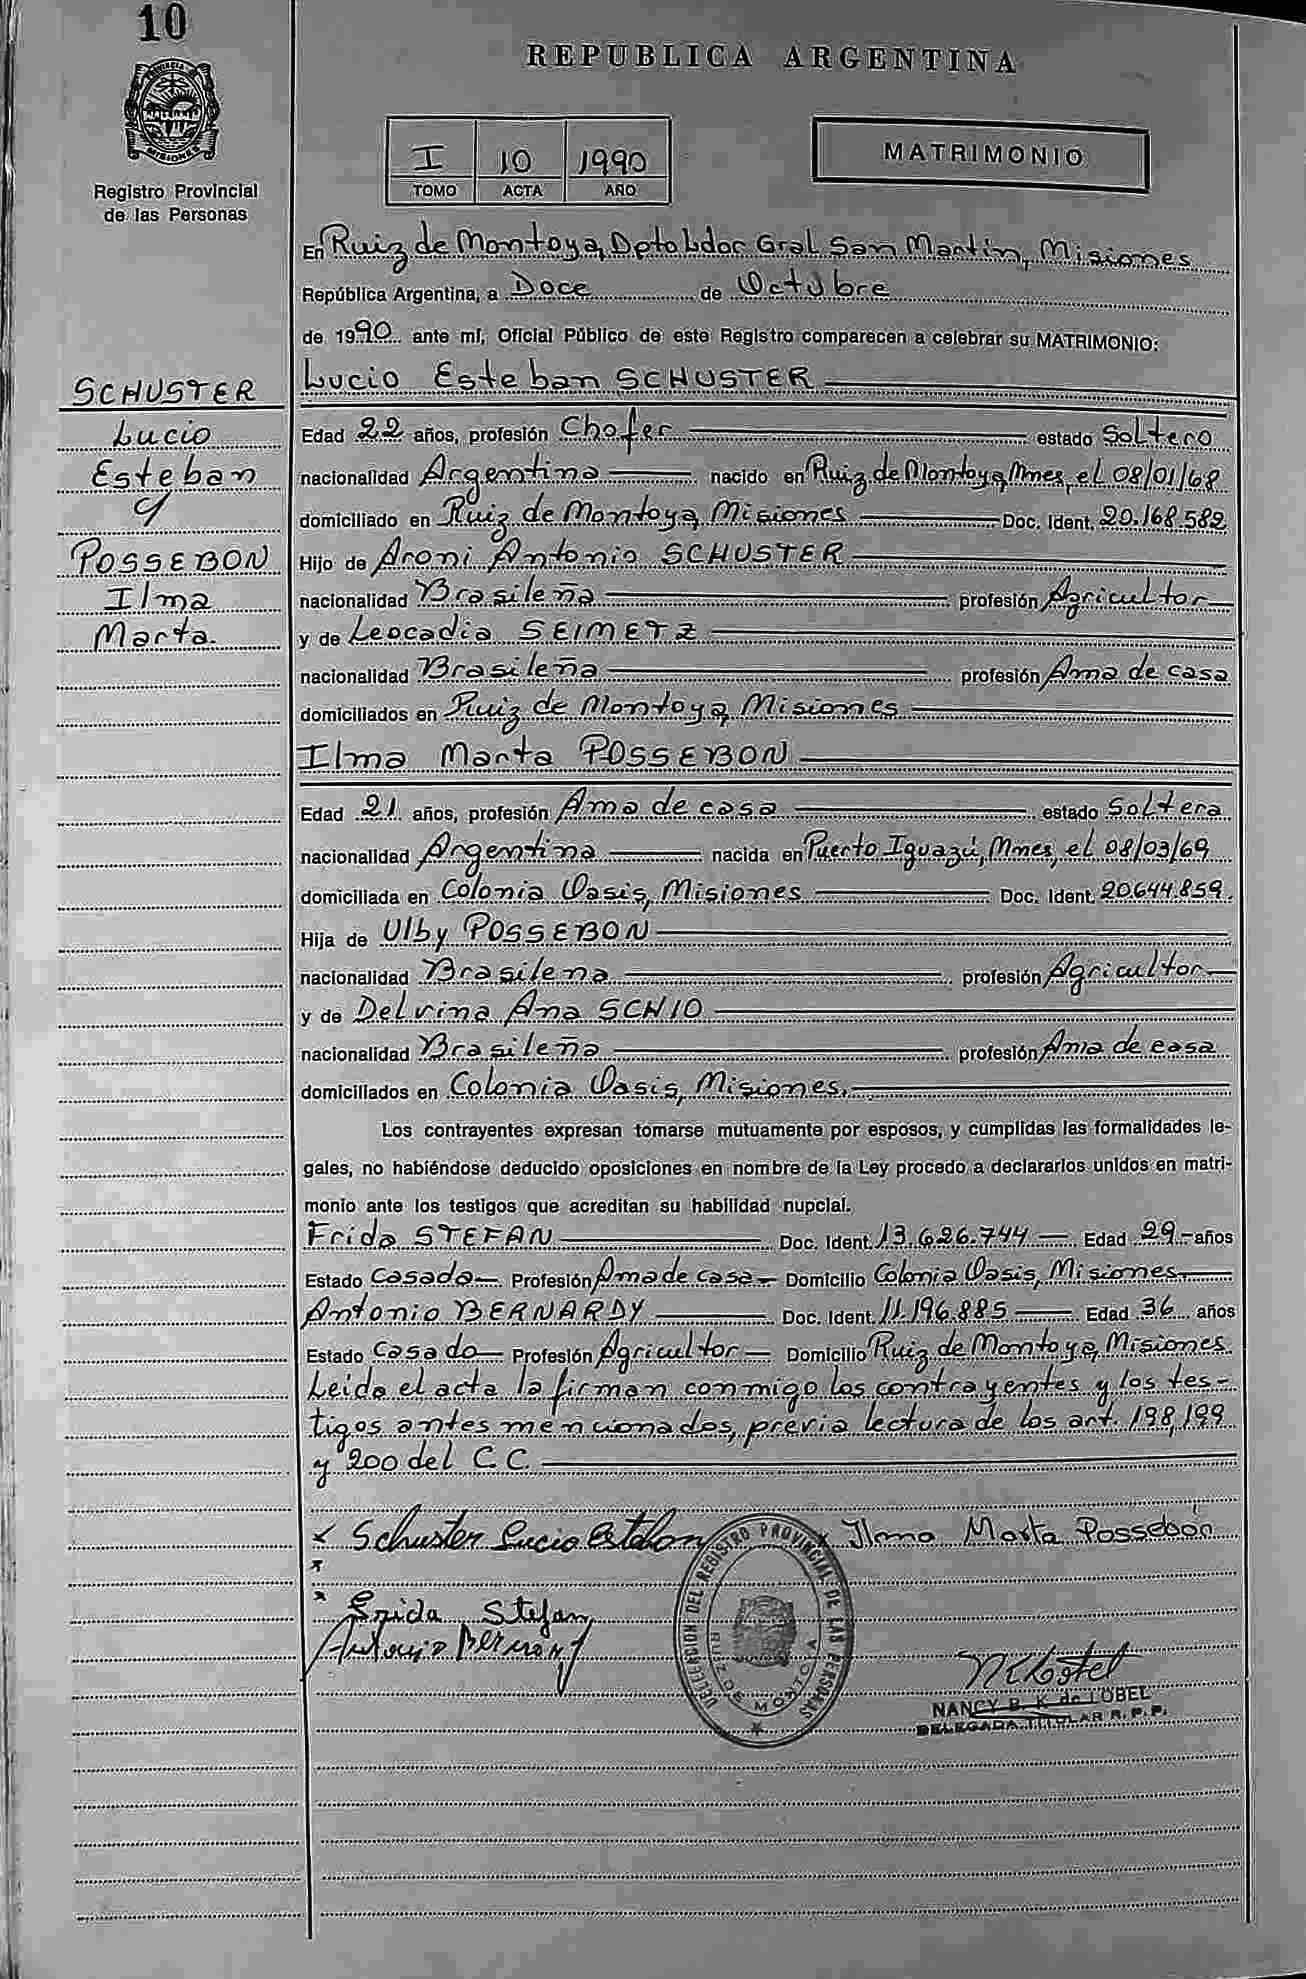 10
REPUBLICA ARGENTINA
PROVINCIA DE
MISIONES
Registro Provincial
de las Personas
I 10 1990
TOMO ACTA AÑO
MATRIMONIO
En Ruiz de Montoya, Dpto Ldor Gral San Martín, Misiones
República Argentina, a Doce de Octubre
de 1990 ante mí, Oficial Público de este Registro comparecen a celebrar su MATRIMONIO:
SCHUSTER
Lucio
Esteban
y
POSSEBON
Ilma
Marta.
Lucio Esteban SCHUSTER
Edad 22 años, profesión Chofer estado Soltero
nacionalidad Argentina nacido en Ruiz de Montoya, Mnes, el 08/01/68
domiciliado en Ruiz de Montoya, Misiones Doc. Ident. 20.168.582
Hijo de Aroni Antonio SCHUSTER
nacionalidad Brasileña profesión Agricultor
y de Leocadia SEIMETZ
nacionalidad Brasileña profesión Ama de casa
domiciliados en Ruiz de Montoya, Misiones
Ilma Marta POSSEBON
Edad 21 años, profesión Ama de casa estado Soltera
nacionalidad Argentina nacida en Puerto Iguazú, Mnes, el 08/03/69
domiciliada en Colonia Oasis, Misiones Doc. Ident. 20.644.859.
Hija de Ulby POSSEBON
nacionalidad Brasilena profesión Agricultor
y de Delvina Ana SCHIO
nacionalidad Brasileña profesión Ama de casa
domiciliados en Colonia Oasis, Misiones.
Los contrayentes expresan tomarse mutuamente por esposos, y cumplidas las formalidades le-
gales, no habiéndose deducido oposiciones en nombre de la Ley procedo a declararlos unidos en matri-
monio ante los testigos que acreditan su habilidad nupcial.
Frida STEFAN Doc. Ident. 13.626.744 Edad 29 años
Estado Casada Profesión Ama de casa Domicilio Colonia Oasis, Misiones.
Antonio BERNARDY Doc. Ident. 11.196.885 Edad 36 años
Estado Casado Profesión Agricultor Domicilio Ruiz de Montoya, Misiones
Leída el acta la firman conmigo los contrayentes y los tes-
tigos antes mencionados, previa lectura de los art. 198,199
y 200 del C.C.
x Schuster Lucio Esteban x Ilma Marta Possebón
x
x Frida Stefan
Antonio Bernardy
DELEGACION DEL REGISTRO PROVINCIAL DE LAS PERSONAS
RUIZ DE MONTOYA
NANCY B. K. de LOBEL
DELEGADA TITULAR R. P. P.